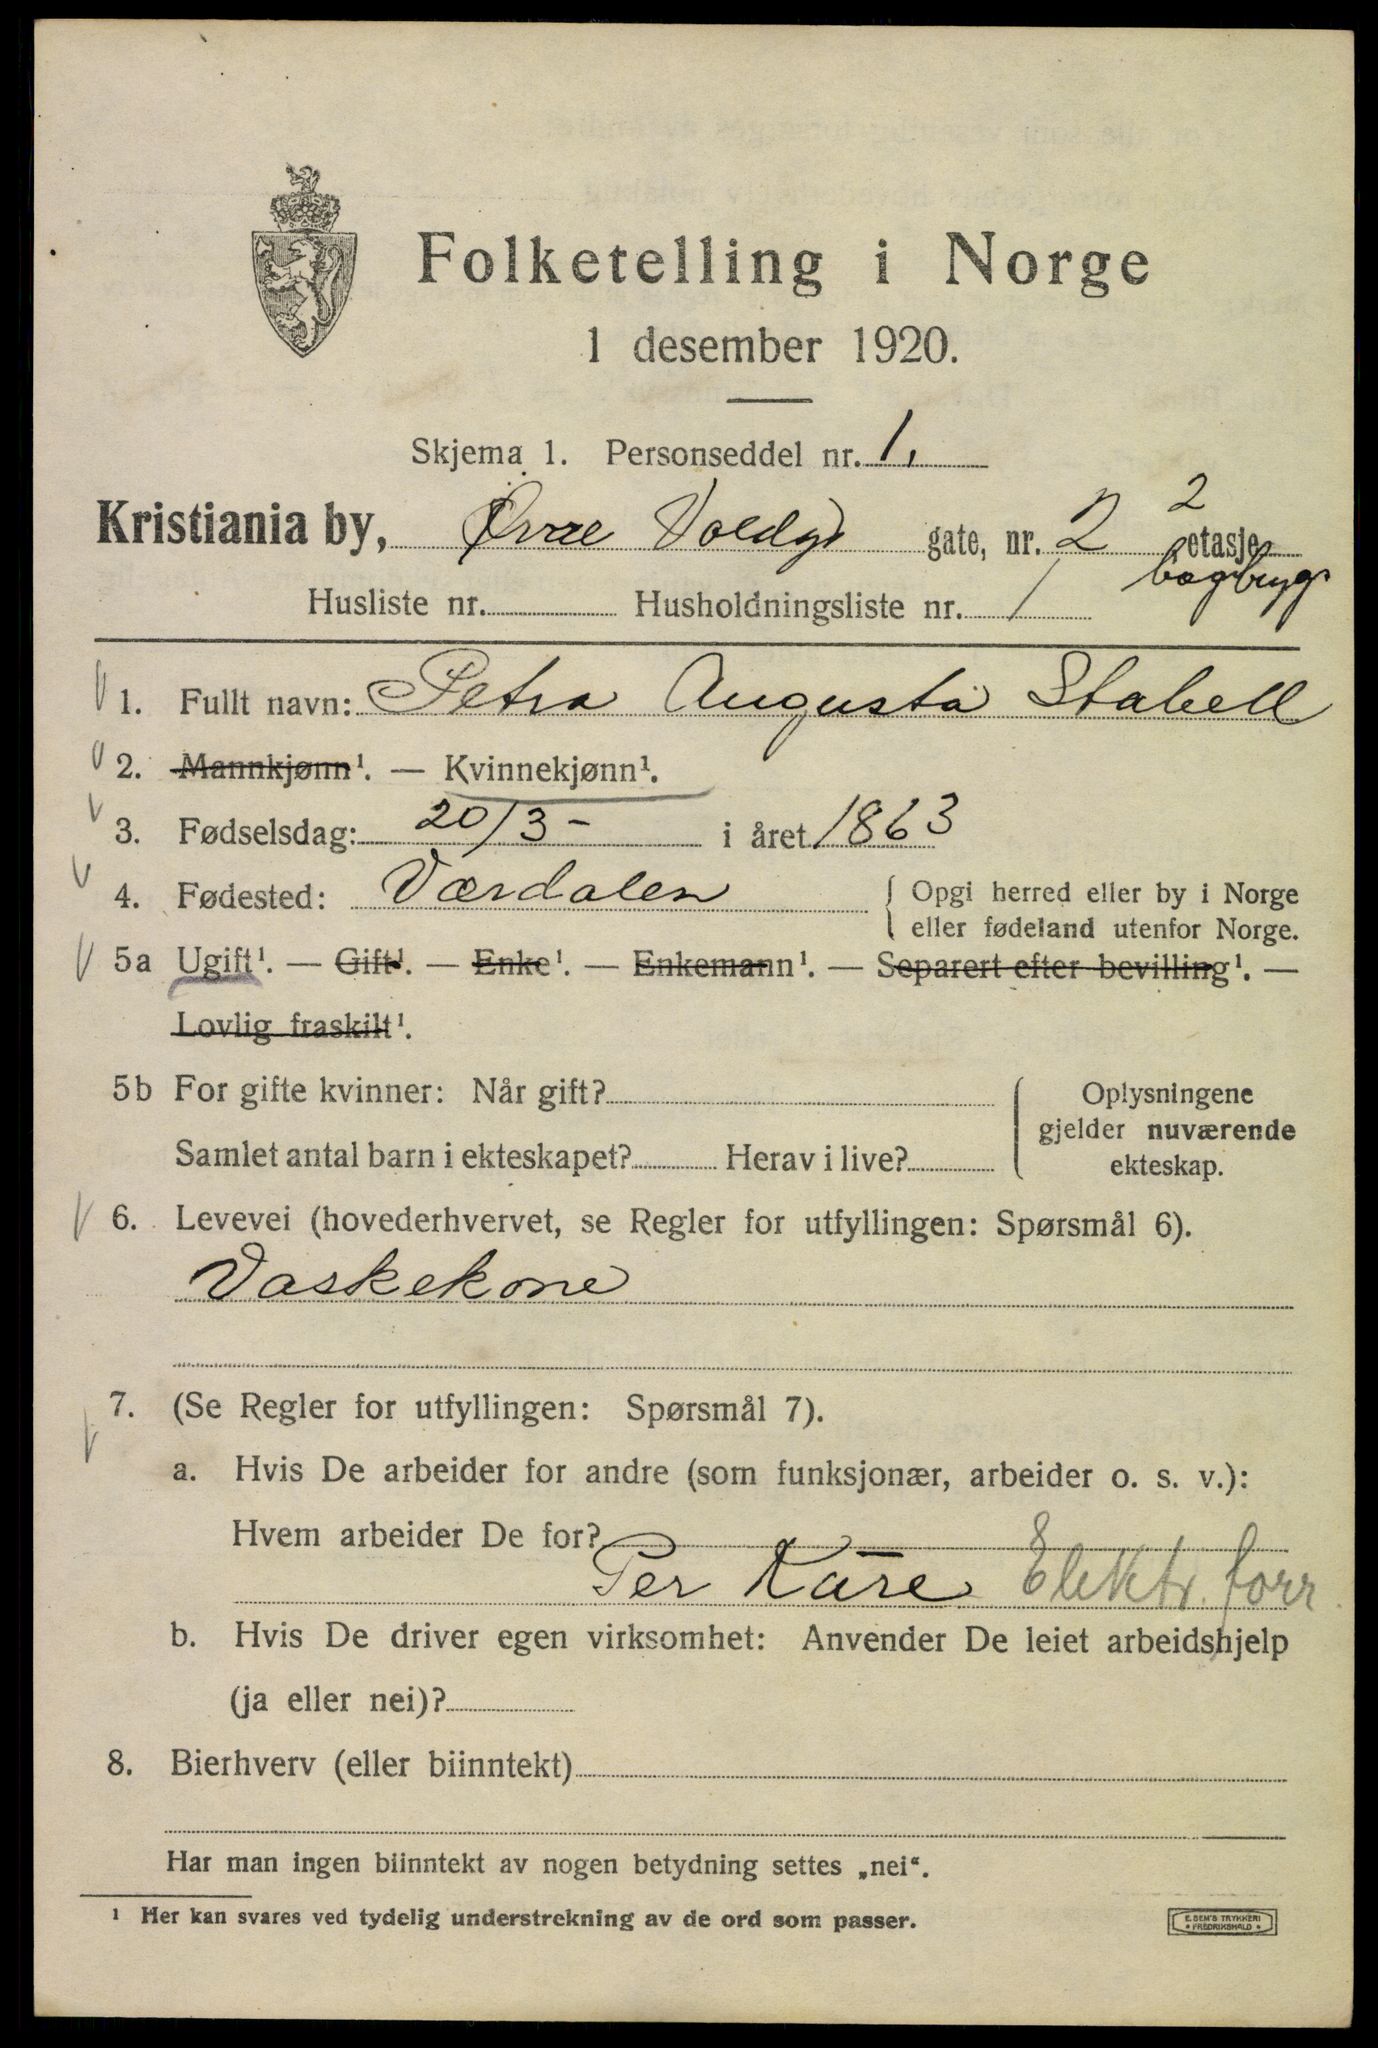 Folketelling i Norge
1 desember 1920.
Skjema 1. Personseddel nr. 1.
Kristiania by, Øvre Voldg. gate, nr. 2 2 etasje
bagbryg.
Husliste nr. Husholdningsliste nr. 1
1. Fullt navn: Petra Augusta Stabell
2. Mannkjønn¹. — Kvinnekjønn¹.
3. Fødselsdag: 20/3 - i året 1863
4. Fødested: Værdalen { Opgi herred eller by i Norge
eller fødeland utenfor Norge.
5a Ugift¹. — Gift¹. — Enke¹. — Enkemann¹. — Separert efter bevilling¹. —
Lovlig fraskilt¹.
5b For gifte kvinner: Når gift? { Oplysningene
gjelder nuværende
Samlet antal barn i ekteskapet? Herav i live? ekteskap.
6. Levevei (hovederhvervet, se Regler for utfyllingen: Spørsmål 6).
Vaskekone
7. (Se Regler for utfyllingen: Spørsmål 7).
a. Hvis De arbeider for andre (som funksjonær, arbeider o. s. v.):
Hvem arbeider De for?
Per Kure Elektr. forr.
b. Hvis De driver egen virksomhet: Anvender De leiet arbeidshjelp
(ja eller nei)?
8. Bierhverv (eller biinntekt)
Har man ingen biinntekt av nogen betydning settes „nei“.
¹ Her kan svares ved tydelig understrekning av de ord som passer.
E. SEM'S TRYKKERI
* FREDRIKSHALD *